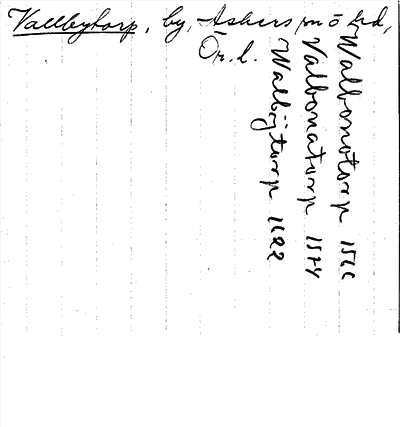 Vallbytorp, by, Askers sn ö hd,
Ör. l.
Walbonotorp 1566
Valbonatorp 1574
Walbÿtorp 1622